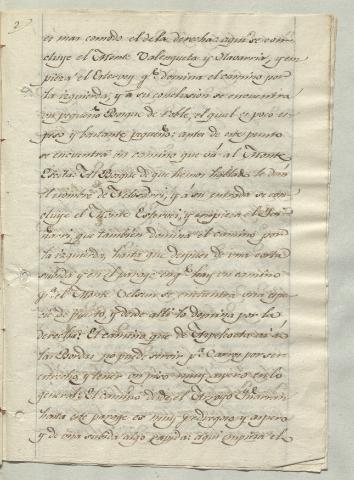 2
es mas comodo el dela derecha: aqui se con-
cluye el Monte Valenqueta y Navarria, y em-
pieza el Estervey q.e domina el camino por
la izquierda, y a su conclusion se encuentra
un pequeño Bosque de Roble, el qual es poco es-
peso y bastante pequeño: antes de este punto
se encuentra un camino que vá al Monte
Este Bosque de que hemos hablado le dan
el nombre de y á su entrada se con-
cluye el Monte Estervei, y empieza el
que tambien domina el camino por
la izquierda, hasta que despues de una corta
subida y en el parage en q.e hay un camino
p.a el Monte se encuentra una espe-
cie de Puerto, y desde alli la domina por la
derecha: El camino que de va á
las Bordas no puede servir p.a Carros por ser
estrecho y tener un piso muy aspero en lo
general: El camino desde el Arroyo
hasta este parage es muy pedregoso y aspero
y de una subida algo rapida: aqui empieza el